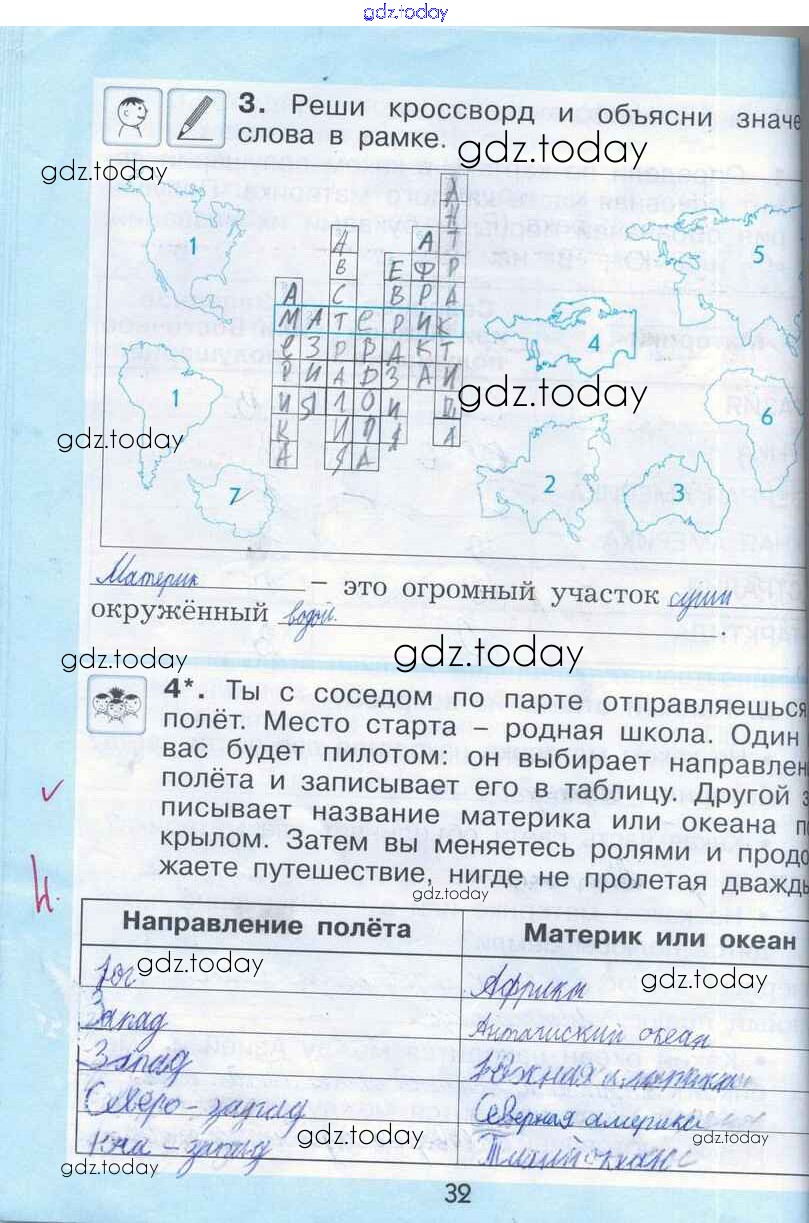 gdz.today
3. Реши кроссворд и объясни значе
слова в рамке.
gdz.today
gdz.today
А
Н
А А Т
В Е Ф Р
А С В Р А
М А Т Е Р И К
Е З Р Р А К Т
Р И А В З А И
И Я Л О И Д
К И П Я А
А Я А
1
5
4
1
6
2
3
7
gdz.today
gdz.today
Материк – это огромный участок суши
окружённый водой.
gdz.today
gdz.today
4*. Ты с соседом по парте отправляешься
полёт. Место старта – родная школа. Один
вас будет пилотом: он выбирает направлен
полёта и записывает его в таблицу. Другой з
писывает название материка или океана п
крылом. Затем вы меняетесь ролями и продо
жаете путешествие, нигде не пролетая дважды
gdz.today
Направление полёта Материк или океан
gdz.today
gdz.today
Юг Африка
Запад океан
Запад Южная америка
Северо-запад Северная америка
запад Тихий океан
gdz.today
gdz.today
gdz.today
32